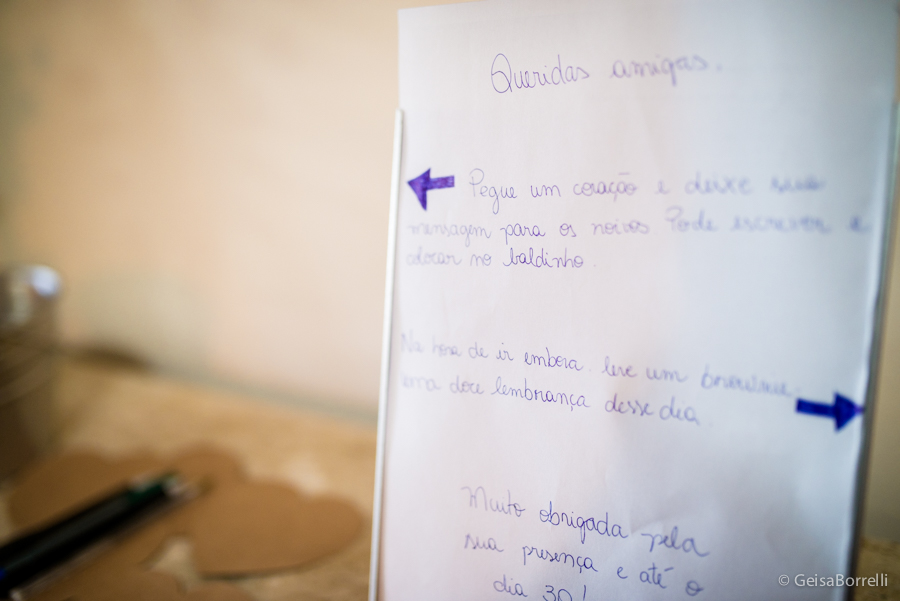 Queridas amigas.
Pegue um coração e deixe sua
mensagem para os noivos Pode escrever e
colocar no baldinho.
Na hora de ir embora. leve um brownie.
uma doce lembrança desse dia
Muito obrigada pela
sua presença e até o
dia 30!
© GeisaBorrelli